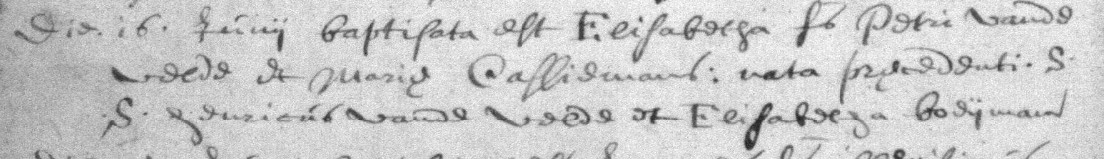 Die. 16. Junij baptisata est Elisabetha fa Petri vande
velde et Mariæ Cassiemans: nata præcedenti. S.
S. Henricus vande velde et Elisabetha boeijman